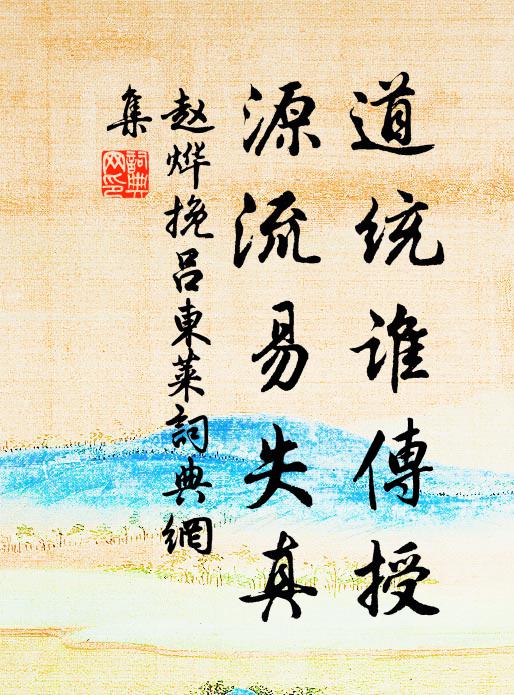 道统谁傳授
源流易失真
赵烨挽呂東萊詞典網
集
詞典
网印